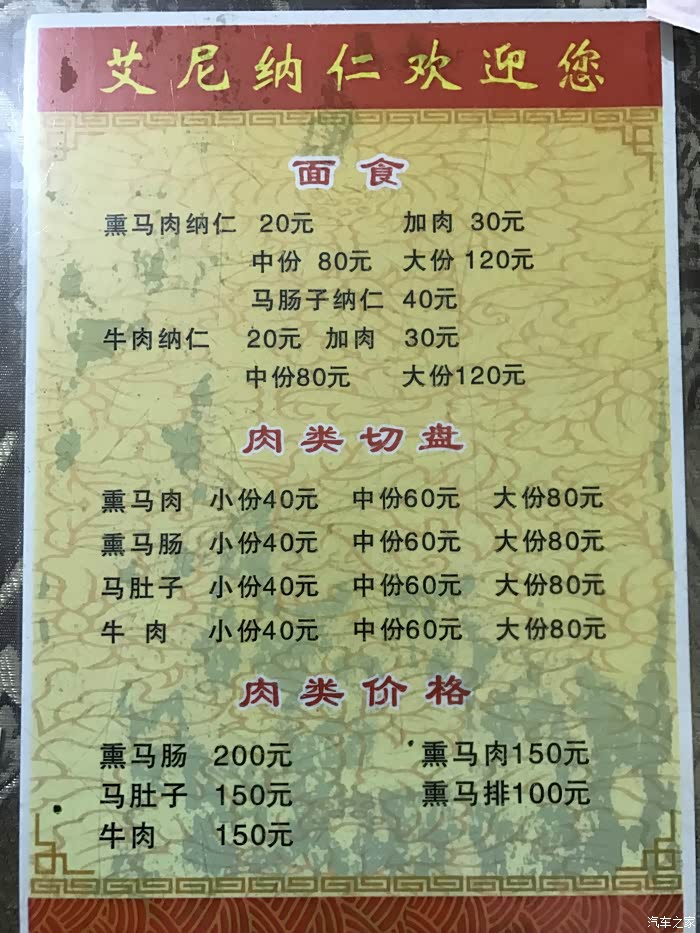 艾尼纳仁欢迎您
面食
熏马肉纳仁 20元 加肉 30元
中份 80元 大份 120元
马肠子纳仁 40元
牛肉纳仁 20元 加肉 30元
中份80元 大份120元
肉类切盘
熏马肉 小份40元 中份60元 大份80元
熏马肠 小份40元 中份60元 大份80元
马肚子 小份40元 中份60元 大份80元
牛 肉 小份40元 中份60元 大份80元
肉类价格
熏马肠 200元 熏马肉150元
马肚子 150元 熏马排100元
牛肉 150元
汽车之家